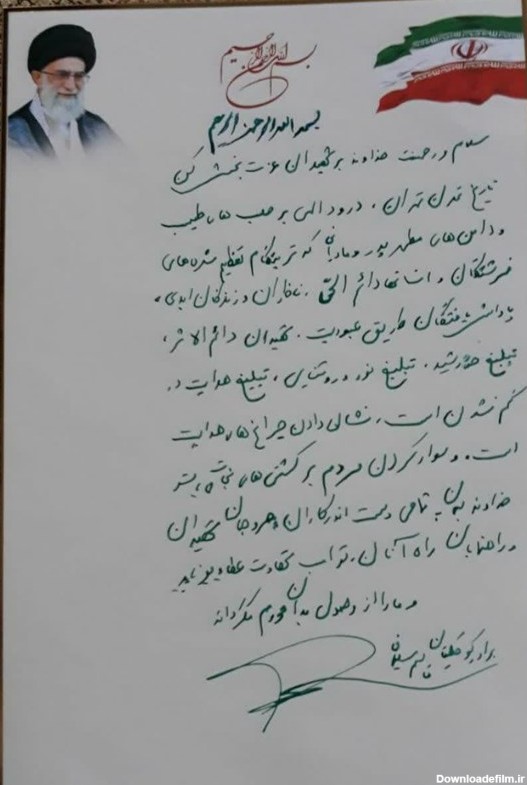 بسم الله الرحمن الرحیم
بسمه الله الرحمن الرحیم
سلام و رحمت خداوند بر شهیدان عزت بخش
تاریخ تمدن تهران، درود الهی بر صلب های طیب
و دامن های مطهر پدر و مادرانی که تربیتگاه تعظیم شده های
فرشتگان و انسانها دائم الحی، ماندگاران و زندگان ابدی،
پاداش یافتگان طریق عبودیت. شهیدان دائم الاثر،
تبلیغ خورشید، تبلیغ نور و روشنایی، تبلیغ هدایت در
گم نشدن است، نشانی دادن چراغ های هدایت
است. و سوار کردن مردم بر کشتی های نجات بشر
خداوند به تمامی دست اندرکاران شهیدان
و راهنمایان راه آنان، ثواب شهادت عطا بفرماید
و ما را از وصول بدان محروم نگرداند
برادر کوچکتان قاسم سلیمانی
Downloadefilm.ir